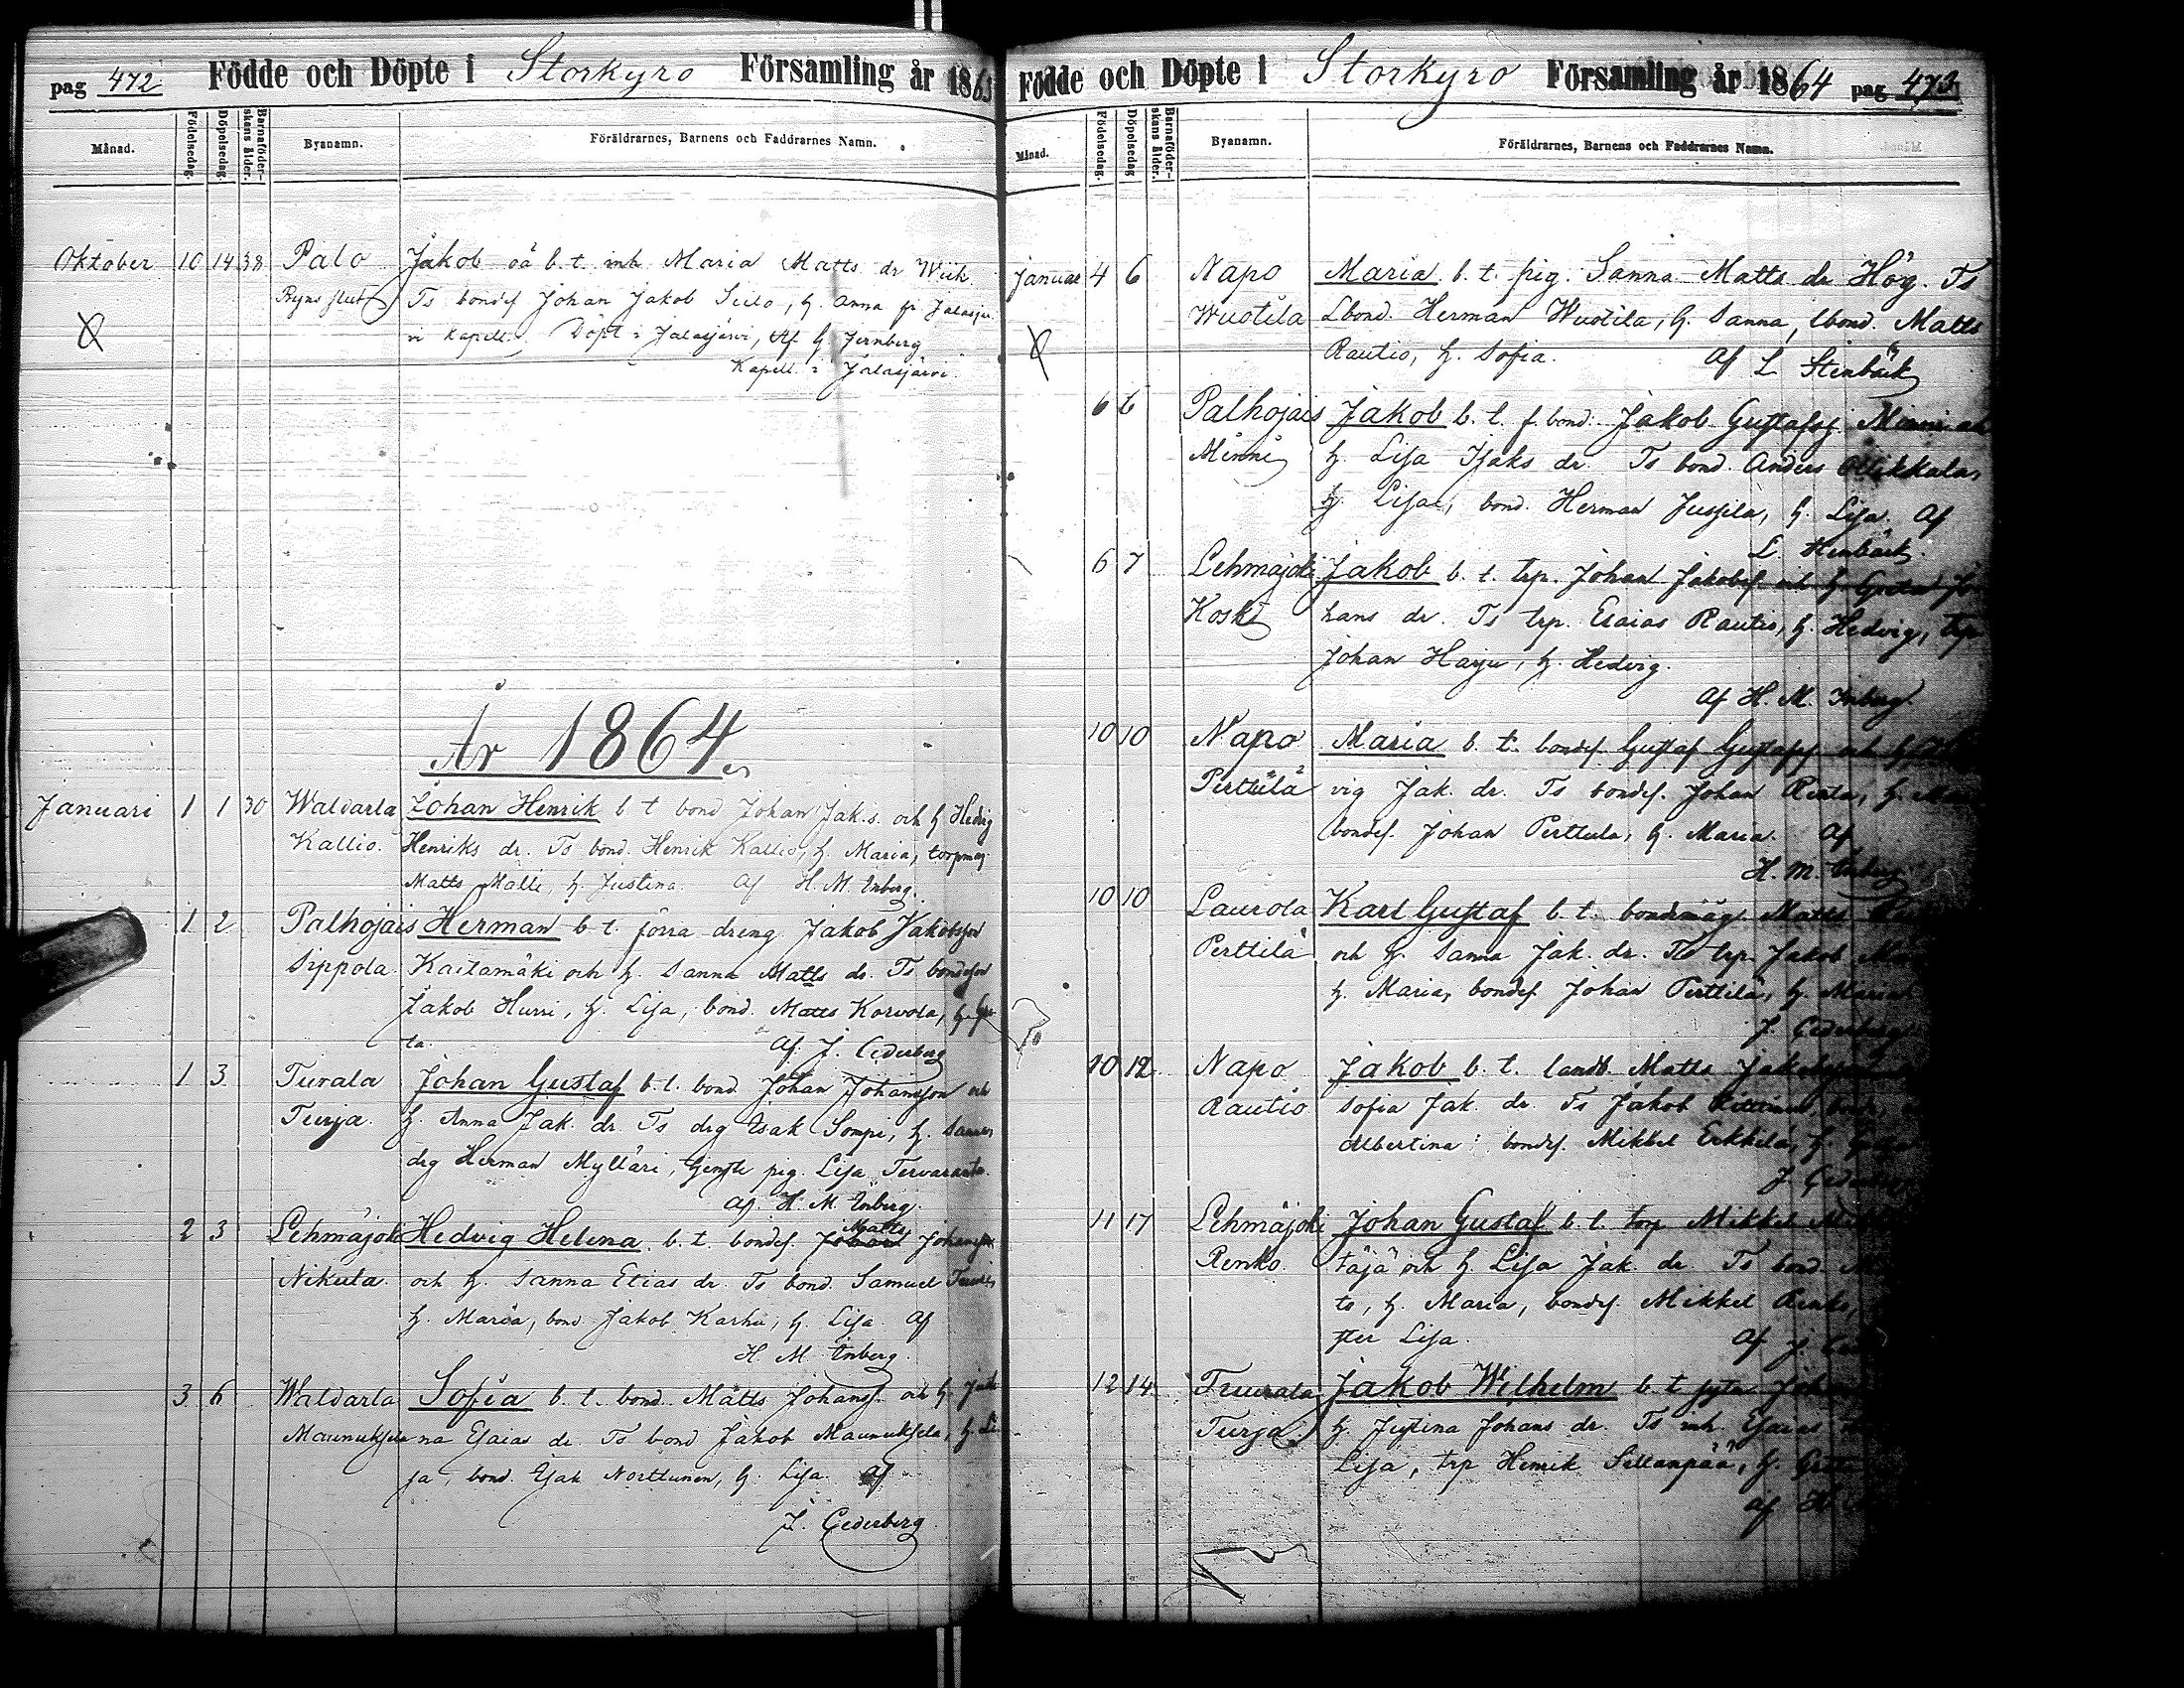 pag 472 Födde och Döpte i Storkyro Församling år 1863
Månad. Födelsedag. Döpelsedag. Barnaföder-skans ålder. Byanamn. Föräldrarnes, Barnens och Faddrarnes Namn.
Oktober 10 14 38 Palo Jakob oä b. t. inh Maria Matts dr Wiik
Ts bondes Johan Jakob Seilo, h. Anna fr Jalasjär
vi Kapell. Döpt i Jalasjärvi, Af G Jernberg
Kapell. i Jalasjärvi
År 1864
Januari 1 1 30 Waldarla Johan Henrik b t bond Johan Jak.s. och h Hedvig
Kallio. Henriks dr. Ts bond. Henrik Kallio, h. Maria, torpmag
Matts Malli, h. Justina. Af H. M. Enberg.
1 2 Palhojais Herman b t. förra dreng Jakob Jakobsson
Sippola Kaitamäki och h. Sanna Matts dr. Ts bondeson
Jakob Hurri, h. Lisa, bond. Matts Korvola, h. Gre
ta. Af J. Cederberg
1 3 Turala Johan Gustaf b. t. bond Johan Johansson och
Turja. h. Anna Jak. dr. Ts drg Isak Sompi, h. Sanna
drg Herman Mylläri, pig. Lisa
Af. H. M. Enberg.
2 3 Lehmäjoki Hedvig Helena b. t. bondes. Matts Johansson
Nikula. och h. Sanna Elias dr. Ts bond. Samuel
h. Maria, bond Jakob Karhu, h. Lisa. Af
H. M. Enberg.
3 6 Waldarla Sofia b. t. bond. Matts Johanss. och h Justi
Maunuksela na Esaias dr. Ts bond Jakob Maunuksela, h. Li
sa, bond. Isak Norttunen, h. Lisa. Af
J. Cederberg
Födde och Döpte i Storkyro Församling år 1864 pag 473
Månad. Födelsedag. Döpelsedag Barnaföder-skans ålder. Byanamn. Föräldrarnes, Barnens och Faddrarnes Namn.
Januar 4 6 Napo Maria b. t. pig. Sanna Matts dr Hörg. Ts
Wuotila Lbond. Herman Wuotila, h. Sanna, lbond. Matts
Rautio, h. Sofia. Af L Stenbäck
6 6 Palhojais Jakob b. t. f. bond. Jakob Gustafss. Minni och
Minni h. Lisa Isaks dr. Ts bond. Anders Ollikkala,
h. Lisa, bond. Herman Jussila, h. Lisa. Af
L. Stenbäck.
6 7 Lehmäjoki Jakob b. t. trp. Johan Jakobss. och h Greta Jo
Koski hans dr. Ts trp. Esaias Rautio, h. Hedvig, trp
Johan Harju, h. Hedvig.
Af H. M. Enberg.
10 10 Napo Maria b. t. bondes. Gustaf Gustafss och h. Hed
Perttilä vig Jak. dr. Ts bondes. Johan h.
bondes. Johan Perttula, h. Maria. Af
H. M. Enberg
10 10 Laurola Karl Gustaf b. t. bondemåg Matts
Perttilä och h. Sanna Jak. dr. Ts trp. Jakob
h. Maria, bondes. Johan Perttilä, h. Maria
J. Cederberg
10 12 Napo Jakob b. t. landb. Matts
Rautio Sofia Jak. dr. Ts Jakob
Albertina; bondes. Mikkel Erkkilä, h.
J Cederberg
11 17 Lehmäjoki Johan Gustaf b. t. trp Mikkel
Renko. täjä och h. Lisa Jak. dr. Ts bond.
to, h. Maria, bondes. Mikkel Renko,
ster Lisa. Af J
12 14 Truurala Jakob Wilhelm b. t. Johan
Turja. h. Justina Johans dr. Ts inh. Esaias
Lisa, trp Henrik Sillanpää, h. Greta
Af H